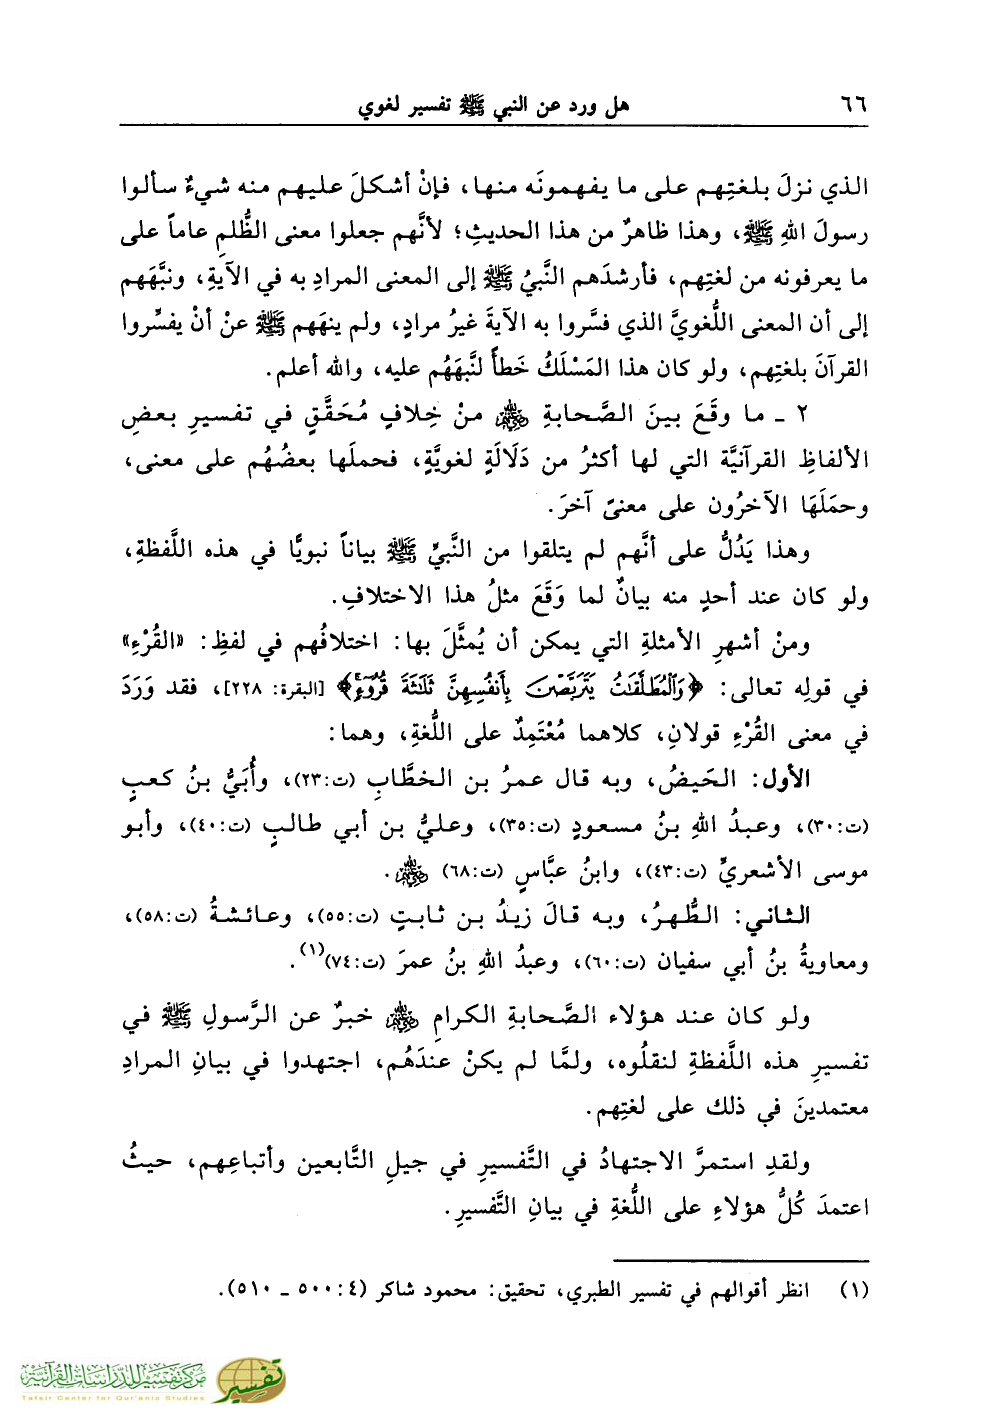 ٦٦ هل ورد عن النبي ﷺ تفسير لغوي
الذي نزلَ بلغتِهم على ما يفهمونَه منها، فإنْ أشكلَ عليهم منه شيءٌ سألوا
رسولَ اللهِ ﷺ، وهذا ظاهرٌ من هذا الحديثِ؛ لأنَّهم جعلوا معنى الظُّلمِ عاماً على
ما يعرفونه من لغتِهم، فأرشدَهم النَّبيُ ﷺ إلى المعنى المرادِ به في الآيةِ، ونبَّهَهم
إلى أن المعنى اللُّغويَّ الذي فسَّروا به الآيةَ غيرُ مرادٍ، ولم ينهَهم ﷺ عنْ أنْ يفسِّروا
القرآنَ بلغتِهم، ولو كان هذا المَسْلَكُ خَطأً لنَّبهَهُم عليه، والله أعلم.
٢ ـ ما وقَعَ بينَ الصَّحابةِ ﵃ منْ خِلافٍ مُحَقَّقٍ في تفسيرِ بعضِ
الألفاظِ القرآنيَّة التي لها أكثرُ من دَلَالَةٍ لغويَّةٍ، فحملَها بعضُهُم على معنى،
وحمَلَهَا الآخرُون على معنىً آخرَ.
وهذا يَدُلُّ على أنَّهم لم يتلقوا من النَّبيِّ ﷺ بياناً نبويًّا في هذه اللَّفظةِ،
ولو كان عند أحدٍ منه بيانٌ لما وَقَعَ مثلُ هذا الاختلافِ.
ومنْ أشهرِ الأمثلةِ التي يمكن أن يُمثَّلَ بها: اختلافُهم في لفظِ: «القُرْءِ»
في قولِه تعالى: ﴿وَالْمُطَلَّقَاتُ يَتَرَبَّصْنَ بِأَنفُسِهِنَّ ثَلَاثَةَ قُرُوٓءٍ﴾ [البقرة: ٢٢٨]، فقد وَرَدَ
في معنى القُرْءِ قولانِ، كلاهما مُعْتَمِدٌ على اللُّغةِ، وهما:
الأول: الحَيضُ، وبه قال عمرُ بن الخطَّابِ (ت:٢٣)، وأُبَيُّ بنُ كعبٍ
(ت:٣٠)، وعبدُ اللهِ بنُ مسعودٍ (ت:٣٥)، وعليُّ بن أبي طالبٍ (ت:٤٠)، وأبو
موسى الأشعريِّ (ت:٤٣)، وابنُ عبَّاسٍ (ت:٦٨) ﵃.
الثاني: الطُّهرُ، وبه قالَ زيدُ بن ثابتٍ (ت:٥٥)، وعائشةُ (ت:٥٨)،
ومعاويةُ بنُ أبي سفيان (ت:٦٠)، وعبدُ اللهِ بنُ عمرَ (ت:٧٤)(١).
ولو كان عند هؤلاء الصَّحابةِ الكرامِ ﵃ خبرٌ عن الرَّسولِ ﷺ في
تفسيرِ هذه اللَّفظةِ لنقلُوه، ولمَّا لم يكنْ عندَهُم، اجتهدوا في بيانِ المرادِ
معتمدينَ في ذلك على لغتِهم.
ولقدِ استمرَّ الاجتهادُ في التَّفسيرِ في جيلِ التَّابعين وأتباعِهم، حيثُ
اعتمدَ كُلُّ هؤلاءِ على اللُّغةِ في بيانِ التَّفسيرِ.
(١) انظر أقوالهم في تفسير الطبري، تحقيق: محمود شاكر (٤: ٥٠٠ ـ ٥١٠).
مركز تفسير للدراسات القرآنية
Tafsir Center for Qur'anic Studies
تفسير